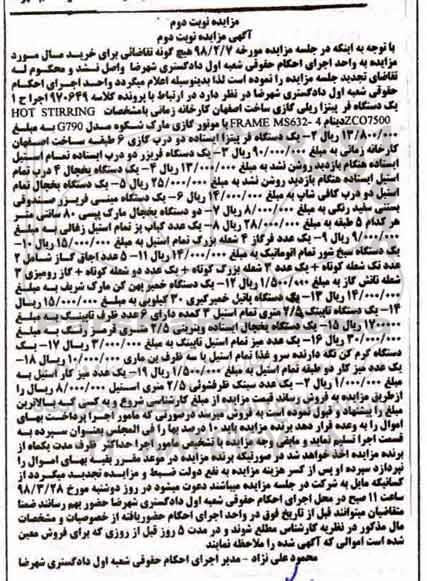 مزایده نوبت دوم
آگهی مزایده نوبت دوم
با توجه به اینکه در جلسه مزایده مورخه ۹۸/۲/۷ هیچ گونه تقاضائی برای خرید مال مورد
مزایده به واحد اجرای احکام حقوقی شعبه اول دادگستری شهرضا واصل نشد و محکوم له
تقاضای تجدید جلسه مزایده را نموده است لذا بدینوسیله اعلام میگردد واحد اجرای احکام
حقوقی شعبه اول دادگستری شهرضا در نظر دارد در ارتباط با پرونده کلاسه ۹۷۰۶۴۹ اجرا ح ۱
یک دستگاه فر پیتزا ریلی گازی ساخت اصفهان کارخانه زمانی بامشخصات HOT STIRRING
ZCO7500دینام FRAME MS632- 4 با موتور گازی مارک شکوه مدل G790 به مبلغ
۱۳/۸۰۰/۰۰۰ ریال ۲- یک دستگاه فر پیتزا ایستاده دو درب گازی ۶ طبقه ساخت اصفهان
کارخانه زمانی به مبلغ ۹۰/۰۰۰/۰۰۰ ریال ۳- یک دستگاه فریزر دو درب ایستاده تمام استیل
ایستاده هنگام بازدید روشن نشد به مبلغ ۱۳/۰۰۰/۰۰۰ ریال ۴- یک دستگاه یخچال ۴ درب تمام
استیل ایستاده هنگام بازدید روشن نشد به مبلغ ۲۵/۰۰۰/۰۰۰ ریال ۵- یک دستگاه یخچال تمام
استیل دو درب کافی شاپ به مبلغ ۱۴/۰۰۰/۰۰۰ ریال ۶- یک دستگاه مینی فریزر صندوقی
بستنی سفید رنگی به مبلغ ۸/۰۰۰/۰۰۰ ریال ۷- دو دستگاه یخچال مارک پپسی ۸۰ سانتی متر
هر کدام ۵ طبقه به مبلغ ۲۸/۰۰۰/۰۰۰ ریال ۸- یک عدد کباب پز تمام استیل زغالی به مبلغ
۹/۰۰۰/۰۰۰ ریال ۹- یک عدد فرگاز ۴ شعله بزرگ تمام استیل به مبلغ ۱۵/۰۰۰/۰۰۰ ریال ۱۰-
یک دستگاه سیخ شور تمام اتوماتیک به مبلغ ۱۴/۰۰۰/۰۰۰ ریال ۱۱- ۵ عدد اجاق گاز شامل ۲
عدد تک شعله کوتاه + یک عدد ۳ شعله بزرگ کوتاه + یک عدد دو شعله کوتاه + گاز رومیزی ۳
شعله تانش گاز به مبلغ ۱/۵۰۰/۰۰۰ ریال ۱۲- یک دستگاه خمیر پهن کن مارک شریف به مبلغ
۱۴/۰۰۰/۰۰۰ ریال ۱۳- یک دستگاه پاتیل خمیرگیری ۳۰ کیلویی به مبلغ ۱۵/۰۰۰/۰۰۰ ریال
۱۴- یک دستگاه تاپینگ ۲/۵ متری تمام استیل ۳ کمده دارای ۶ عدد ظرف تاپینگ به مبلغ
ریال ۱۵- یک دستگاه یخچال ایستاده ویترینی ۲/۵ متری به مبلغ
۳۰/۰۰۰/۰۰۰ ریال ۱۶- یک عدد میز تمام استیل تاپینگ به مبلغ ۳/۰۰۰/۰۰۰ ریال ۱۷- یک
دستگاه گرم کن نگه دارنده سرو غذا تمام استیل با سه ظرف بن ماری ۱۰/۰۰۰/۰۰۰ ریال ۱۸-
یک عدد میز کار دو طبقه تمام استیل به مبلغ ۱/۵۰۰/۰۰۰ ریال ۱۹- یک عدد میز کار استیل به
مبلغ ۱/۰۰۰/۰۰۰ ریال ۲- یک عدد سینک ظرفشوئی ۲/۵ متری استیل ۸/۰۰۰/۰۰۰ ریال را
ازطریق مزایده به فروش رساند قیمت مزایده از مبلغ کارشناسی شروع و به کسی که بالاترین
مبلغ را پیشنهاد و قبول نموده است به فروش میرسد درصورتی که مامور اجرا پرداخت بهای
اموال را به وعده قرار دهد برنده مزایده باید ۱۰ درصد بها را فی المجلس بعنوان سپرده به
قسمت اجرا تسلیم نماید و مابقی وجه مزایده با تشخیص مامور اجرا حداکثر ظرف مدت یکماه از
برنده مزایده اخذ خواهد شد در صورتیکه برنده مزایده در موعد مقرر بقیه بهای اموال را
نپردازد سپرده او پس از کسر هزینه مزایده به نفع دولت ضبط و مزایده تجدید میگردد از
کسانیکه مایل به شرکت در جلسه مزایده میباشند دعوت میشود در روز دوشنبه مورخ ۹۸/۳/۲۸
ساعت ۱۱ صبح در محل اجرای احکام حقوقی شعبه اول دادگستری شهرضا حضور بهم رسانند ضمنا
متقاضیان میتوانند قبل از تاریخ فوق در واحد اجرای احکام حضوریافته از خصوصیات و مشخصات
مال مذکور در نظریه کارشناس مطلع شوند و در مدت ۵ روز قبل از روزی که برای فروش معین
شده است اموالی که آگهی شده را ملاحظه نمایند
محمود علی نژاد - مدیر اجرای احکام حقوقی شعبه اول دادگستری شهرضا